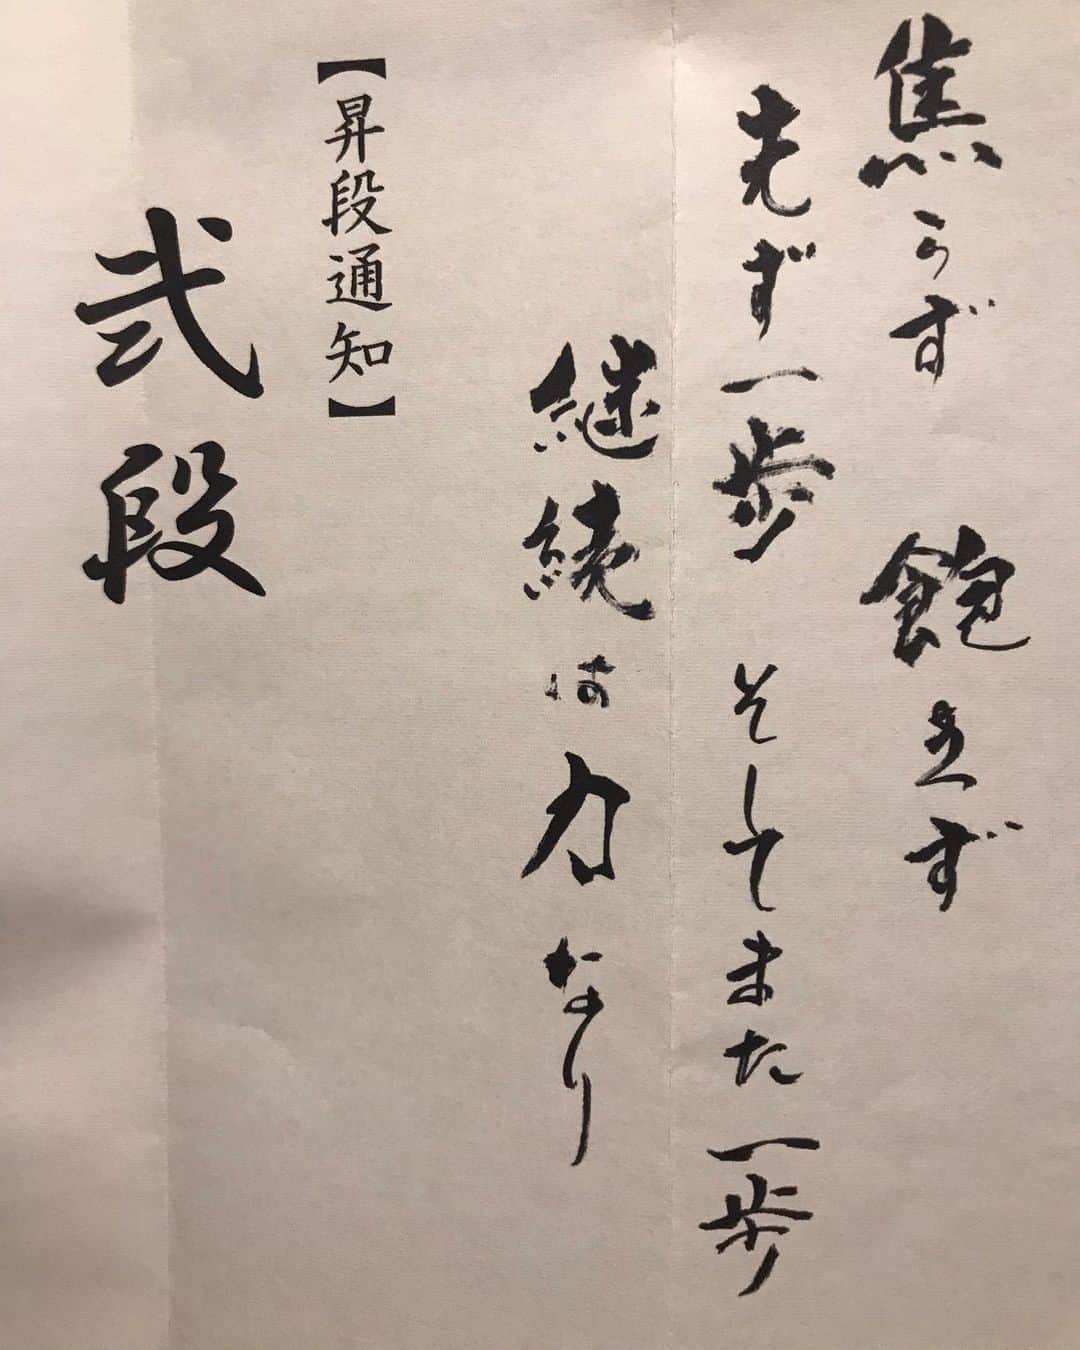 焦らず 飽きず
先ず一歩 そしてまた一歩
継続は力なり
【昇段通知】
弐段